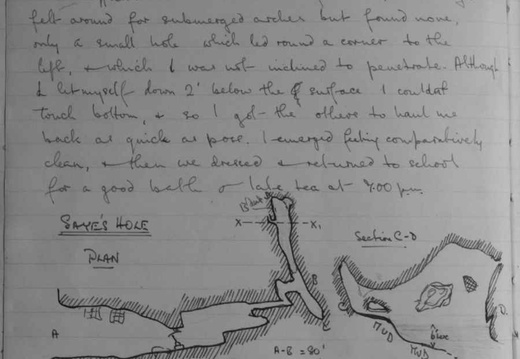 felt around for submerged arches but found none,
only a small hole which led round a corner to the
left, & which I was not inclined to penetrate. Although
I let myself down 2' below the surface I couldnt
touch bottom, & so I got the others to haul me
back as quick as poss. I emerged feeling comparatively
clean, & then we dressed & returned to school
for a good bath & late tea at 7.00 p.m.
SAYE'S HOLE
PLAN
X X₁
Section C-D
B
A
MUD
MUD
A-B = 80'